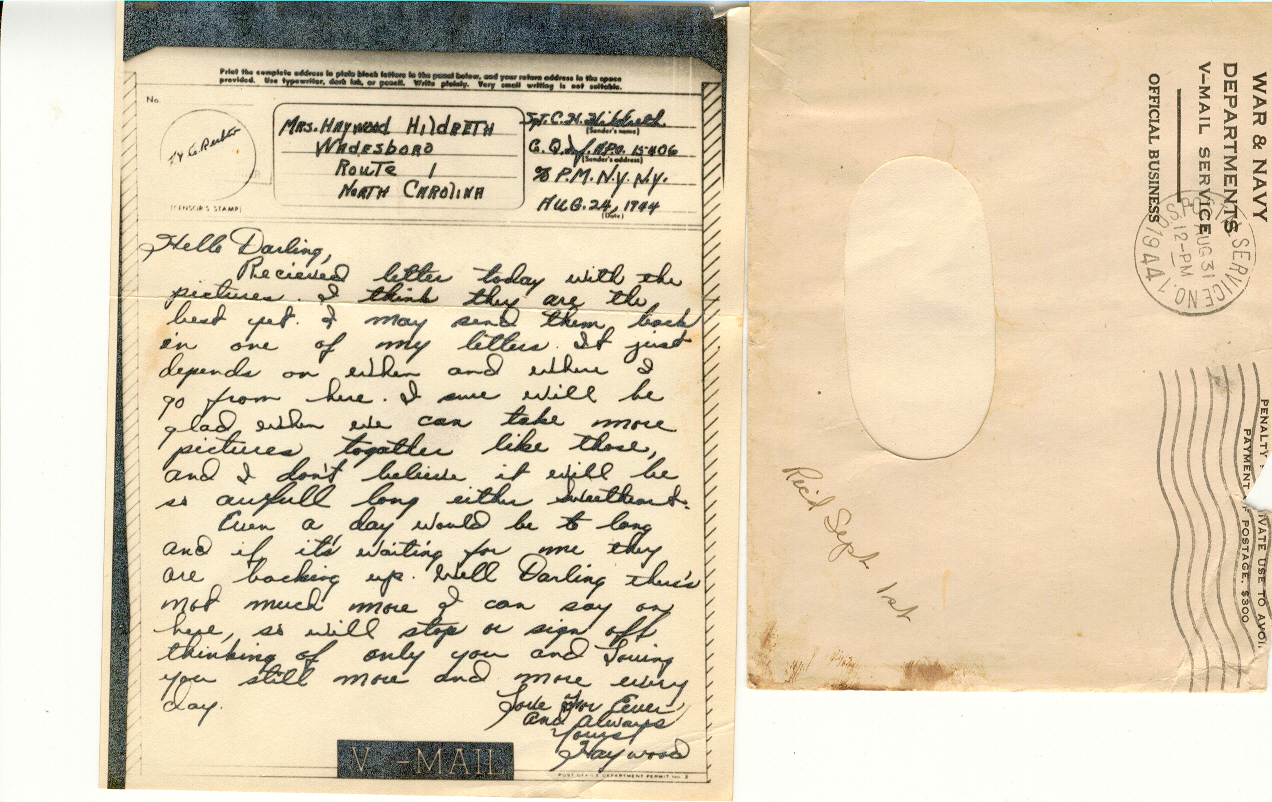 Print the complete address in plain block letters in the panel below, and your return address in the space
provided. Use typewriter, dark ink, or pencil. Write plainly. Very small writing is not suitable.
No.
(CENSOR'S STAMP)
MRS. HAYWOOD HILDRETH
WADESBORO
ROUTE 1
NORTH CAROLINA
C. H. Hildreth
(Sender's name)
Co. Q Inf. A.P.O. 15406
(Sender's address)
% P.M. N.Y. N.Y.
AUG. 24, 1944
(Date)
Hello Darling,
Recieved letter today with the
pictures. I think they are the
best yet. I may send them back
in one of my letters. It just
depends on when and where I
go from here. I sure will be
glad when we can take more
pictures together like those,
and I don't believe it will be
so awfull long either sweetheart.
Even a day would be to long
and if it's waiting for me they
are backing up. Well Darling there's
not much more I can say on
here, so will stop or sign off
thinking of only you and Loving
you still more and more every
day.
Love For Ever
and Always
Yours
Haywood
V - MAIL
POST OFFICE DEPARTMENT PERMIT NO. 2
WAR & NAVY
DEPARTMENTS
V-MAIL SERVICE
OFFICIAL BUSINESS
SERVICE NO. 1
AUG 31
12-PM
1944
U.S.
PENALTY
IVATE USE TO AVOI
PAYMENT OF POSTAGE, $300
Rec'd Sept 1st